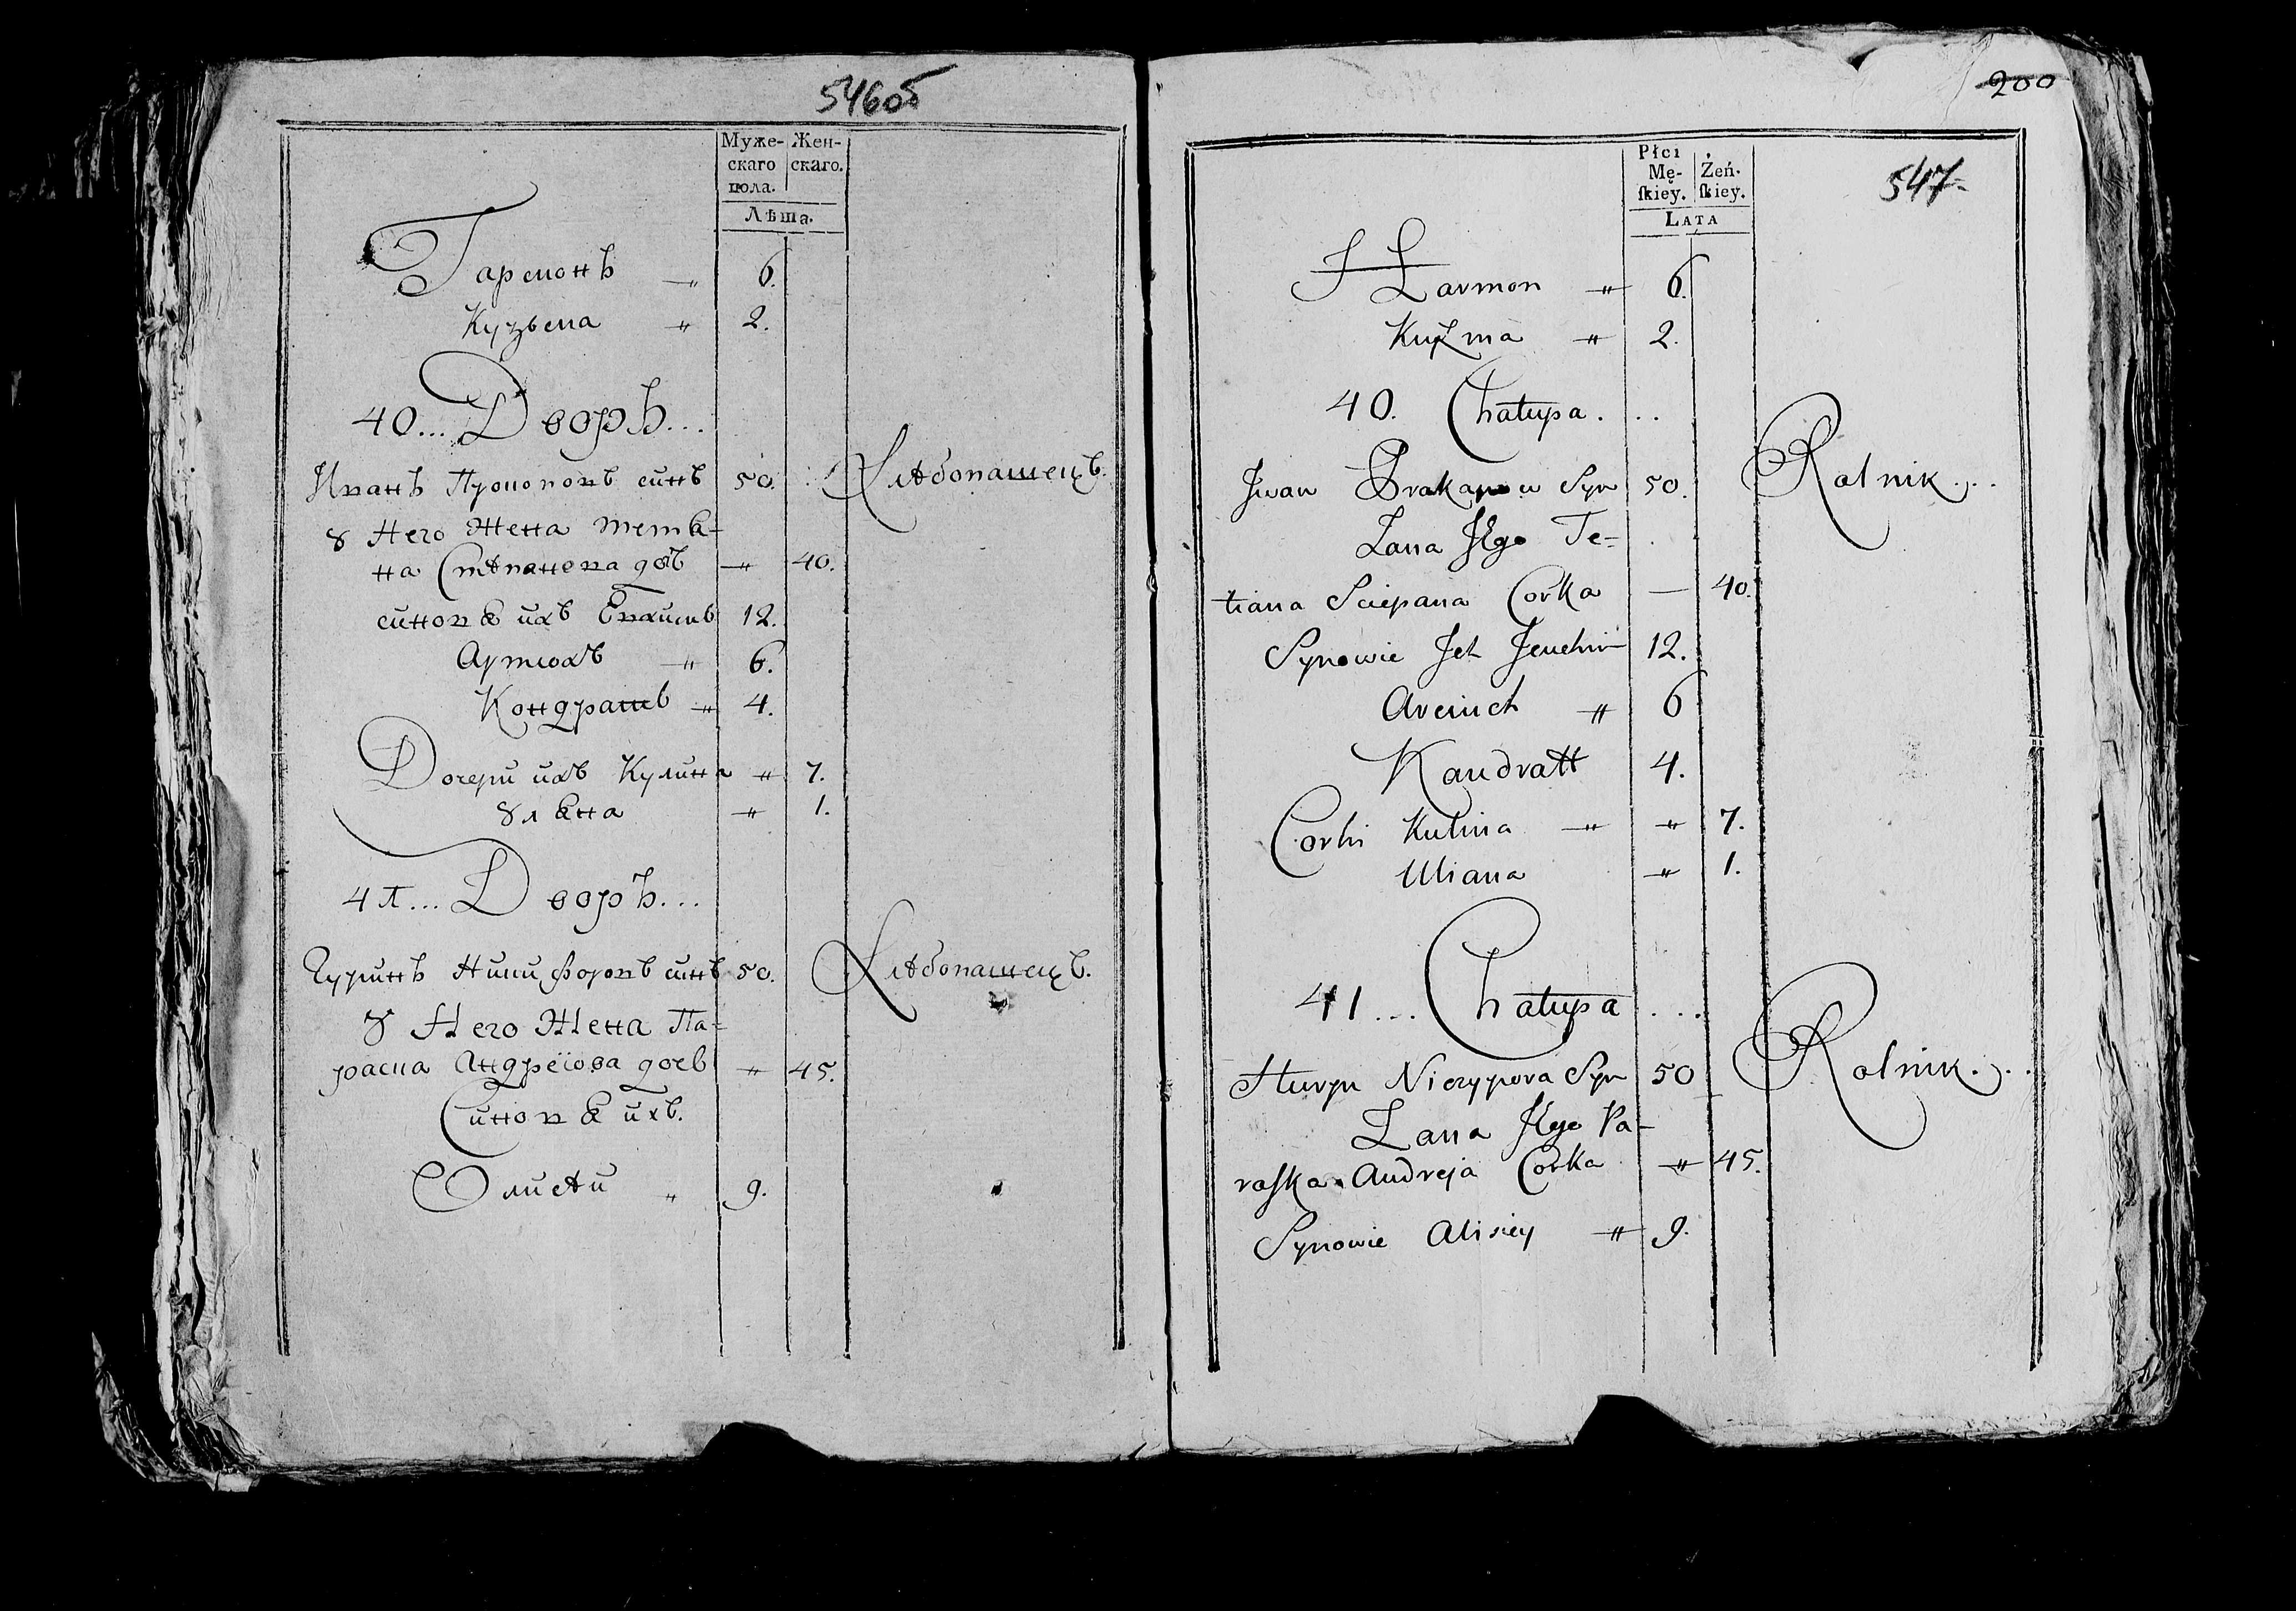 546об
Муже- Жен-
скаго скаго.
пола.
Лѣта.
Гармонъ " 6.
Кузьма " 2.
40... Дворъ...
Иванъ Прокоповъ синъ 50. Хлѣбопашецъ.
у Него Жена Тетя-
на Стѣпанова доч " 40.
синовя ихъ Евхимъ 12.
Артюхъ " 6.
Кондратъ " 4.
Дочери ихъ Кулина " 7.
Уляна " 1.
41... Дворъ...
Гуринъ Никифоровъ синъ 50. Хлѣбопашецъ.
у Него Жена Па-
раска Андреіова доч " 45.
Синовя ихъ.
Олисѣй " 9.
200
547
Płci
Mę- Żeń-
ſkiey. ſkiey.
LATA
Harmon " 6.
Kuźma " 2.
40. Chałupa...
Jwan Prakapow Syn 50. Rolnik...
Żana Jego Te-
tiana Sciepana Corka — 40.
Synowie Jch Jeuchim 12.
Arciuch " 6
Kandratt 4.
Corki Kulina " " 7.
Uliana " 1.
41... Chałupa...
Huryn Niczypora Syn 50 Rolnik...
Żana Jego Pa-
raſka Andreja Corka " 45.
Synowie Alisiey " 9.